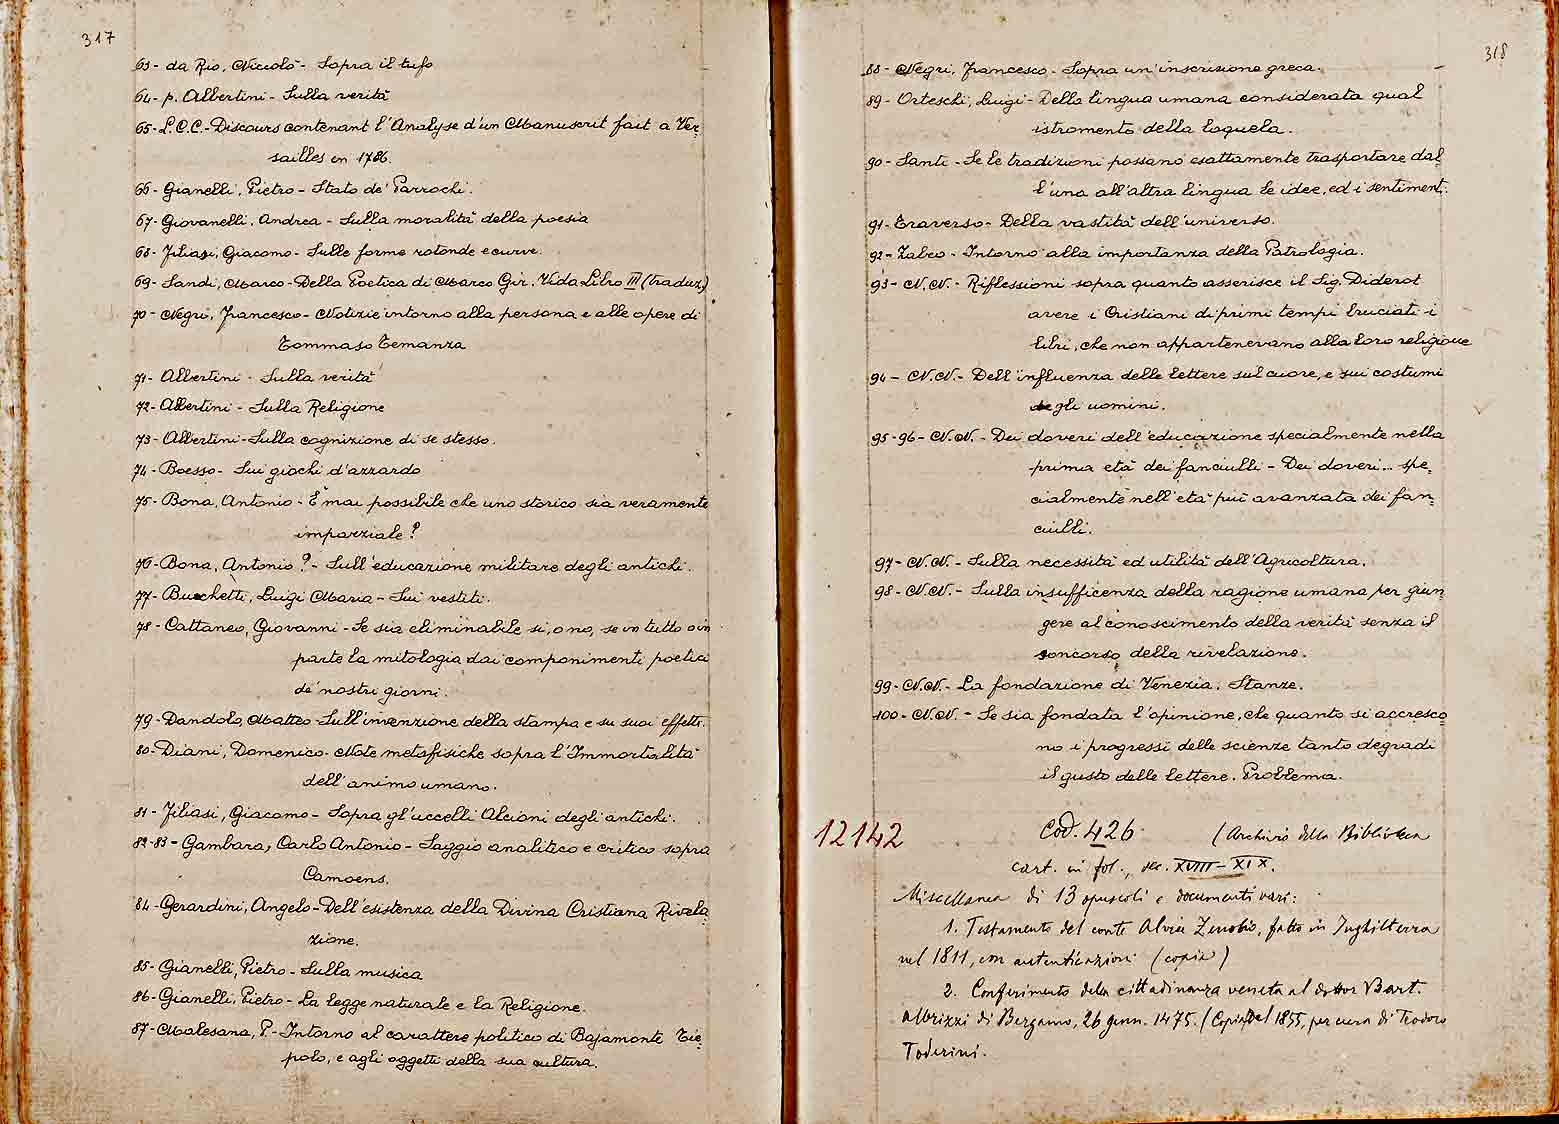 317
63- da Rio, Niccolò - Sopra il tufo
64- p. Albertini - Sulla verità
65- L.C.C. - Discours contenant l'Analyse d'un Manuscrit fait a Ver-
sailles en 1786.
66- Gianelli, Pietro - Stato de' Parrochi.
67- Giovanelli, Andrea - Sulla moralità della poesia
68- Filiasi, Giacomo - Sulle forme rotonde e curve.
69- Sandi, Marco - Della Poetica di Marco Gir. Vida Libro III (traduz.)
70- Negri, Francesco - Notizie intorno alla persona e alle opere di
Tommaso Temanza
71- Albertini - Sulla verità
72- Albertini - Sulla Religione
73- Albertini - Sulla cognizione di se stesso.
74- Boesso - Sui giochi d'azzardo
75- Bona, Antonio - È mai possibile che uno storico sia veramente
imparziale?
76- Bona, Antonio? - Sull'educazione militare degli antichi.
77- Buschetti, Luigi Maria - Sui vestiti.
78- Cattaneo, Giovanni - Se sia eliminabile si, o no, se in tutto o in
parte la mitologia dai componimenti poetici
de' nostri giorni.
79- Dandolo, Matteo - Sull'invenzione della stampa e su suoi effetti.
80- Diani, Domenico - Note metafisiche sopra l'Immortalità
dell'animo umano.
81- Filiasi, Giacomo - Sopra gl'uccelli Alcioni degli antichi.
82-83- Gambara, Carlo Antonio - Saggio analitico e critico sopra
Camoens.
84- Gerardini, Angelo - Dell'esistenza della Divina Cristiana Rivela-
zione.
85- Gianelli, Pietro - Sulla musica
86- Gianelli, Pietro - La legge naturale e la Religione.
87- Malesana, P. - Intorno al carattere politico di Bajamonte Tie-
polo, e agli oggetti della sua cultura.
318
88- Negri, Francesco - Sopra un'inscrizione greca.
89- Orteschi, Luigi - Della lingua umana considerata qual
istromento della loquela.
90- Santi - Se le tradizioni possano esattamente trasportare dal-
l'una all'altra lingua le idee, ed i sentimenti.
91- Traverso - Della vastità dell'universo.
92- Zabeo - Intorno alla importanza della Patrologia.
93- N.N. - Riflessioni sopra quanto asserisce il Sig. Diderot
avere i Cristiani di primi tempi bruciati i
libri, che non appartenevano alla loro religione
94- N.N. - Dell'influenza delle lettere sul cuore, e sui costumi
degli uomini.
95-96- N.N. - Dei doveri dell'educazione specialmente nella
prima età dei fanciulli - Dei doveri... spe-
cialmente nell'età più avanzata dei fan-
ciulli.
97- N.N. - Sulla necessità ed utilità dell'Agricoltura.
98- N.N. - Sulla insufficenza della ragione umana per giun-
gere al conoscimento della verità senza il
concorso della rivelazione.
99- N.N. - La fondazione di Venezia. Stanze.
100- N.N. - Se sia fondata l'opinione, che quanto si accresco-
no i progressi delle scienze tanto degradi
il gusto delle lettere. Problema.
12142 Cod. 426 (Archivio della Biblioteca
cart. in fol., sec. XVIII-XIX.
Miscellanea di 13 opuscoli e documenti vari:
1. Testamento del conte Alvise Zenobio, fatto in Inghilterra
nel 1811, con autenticazioni (copia)
2. Conferimento della cittadinanza veneta al dottor Bart.
Albrizzi di Bergamo, 26 genn. 1475. (Copia del 1855, per cura di Teodoro
Toderini.